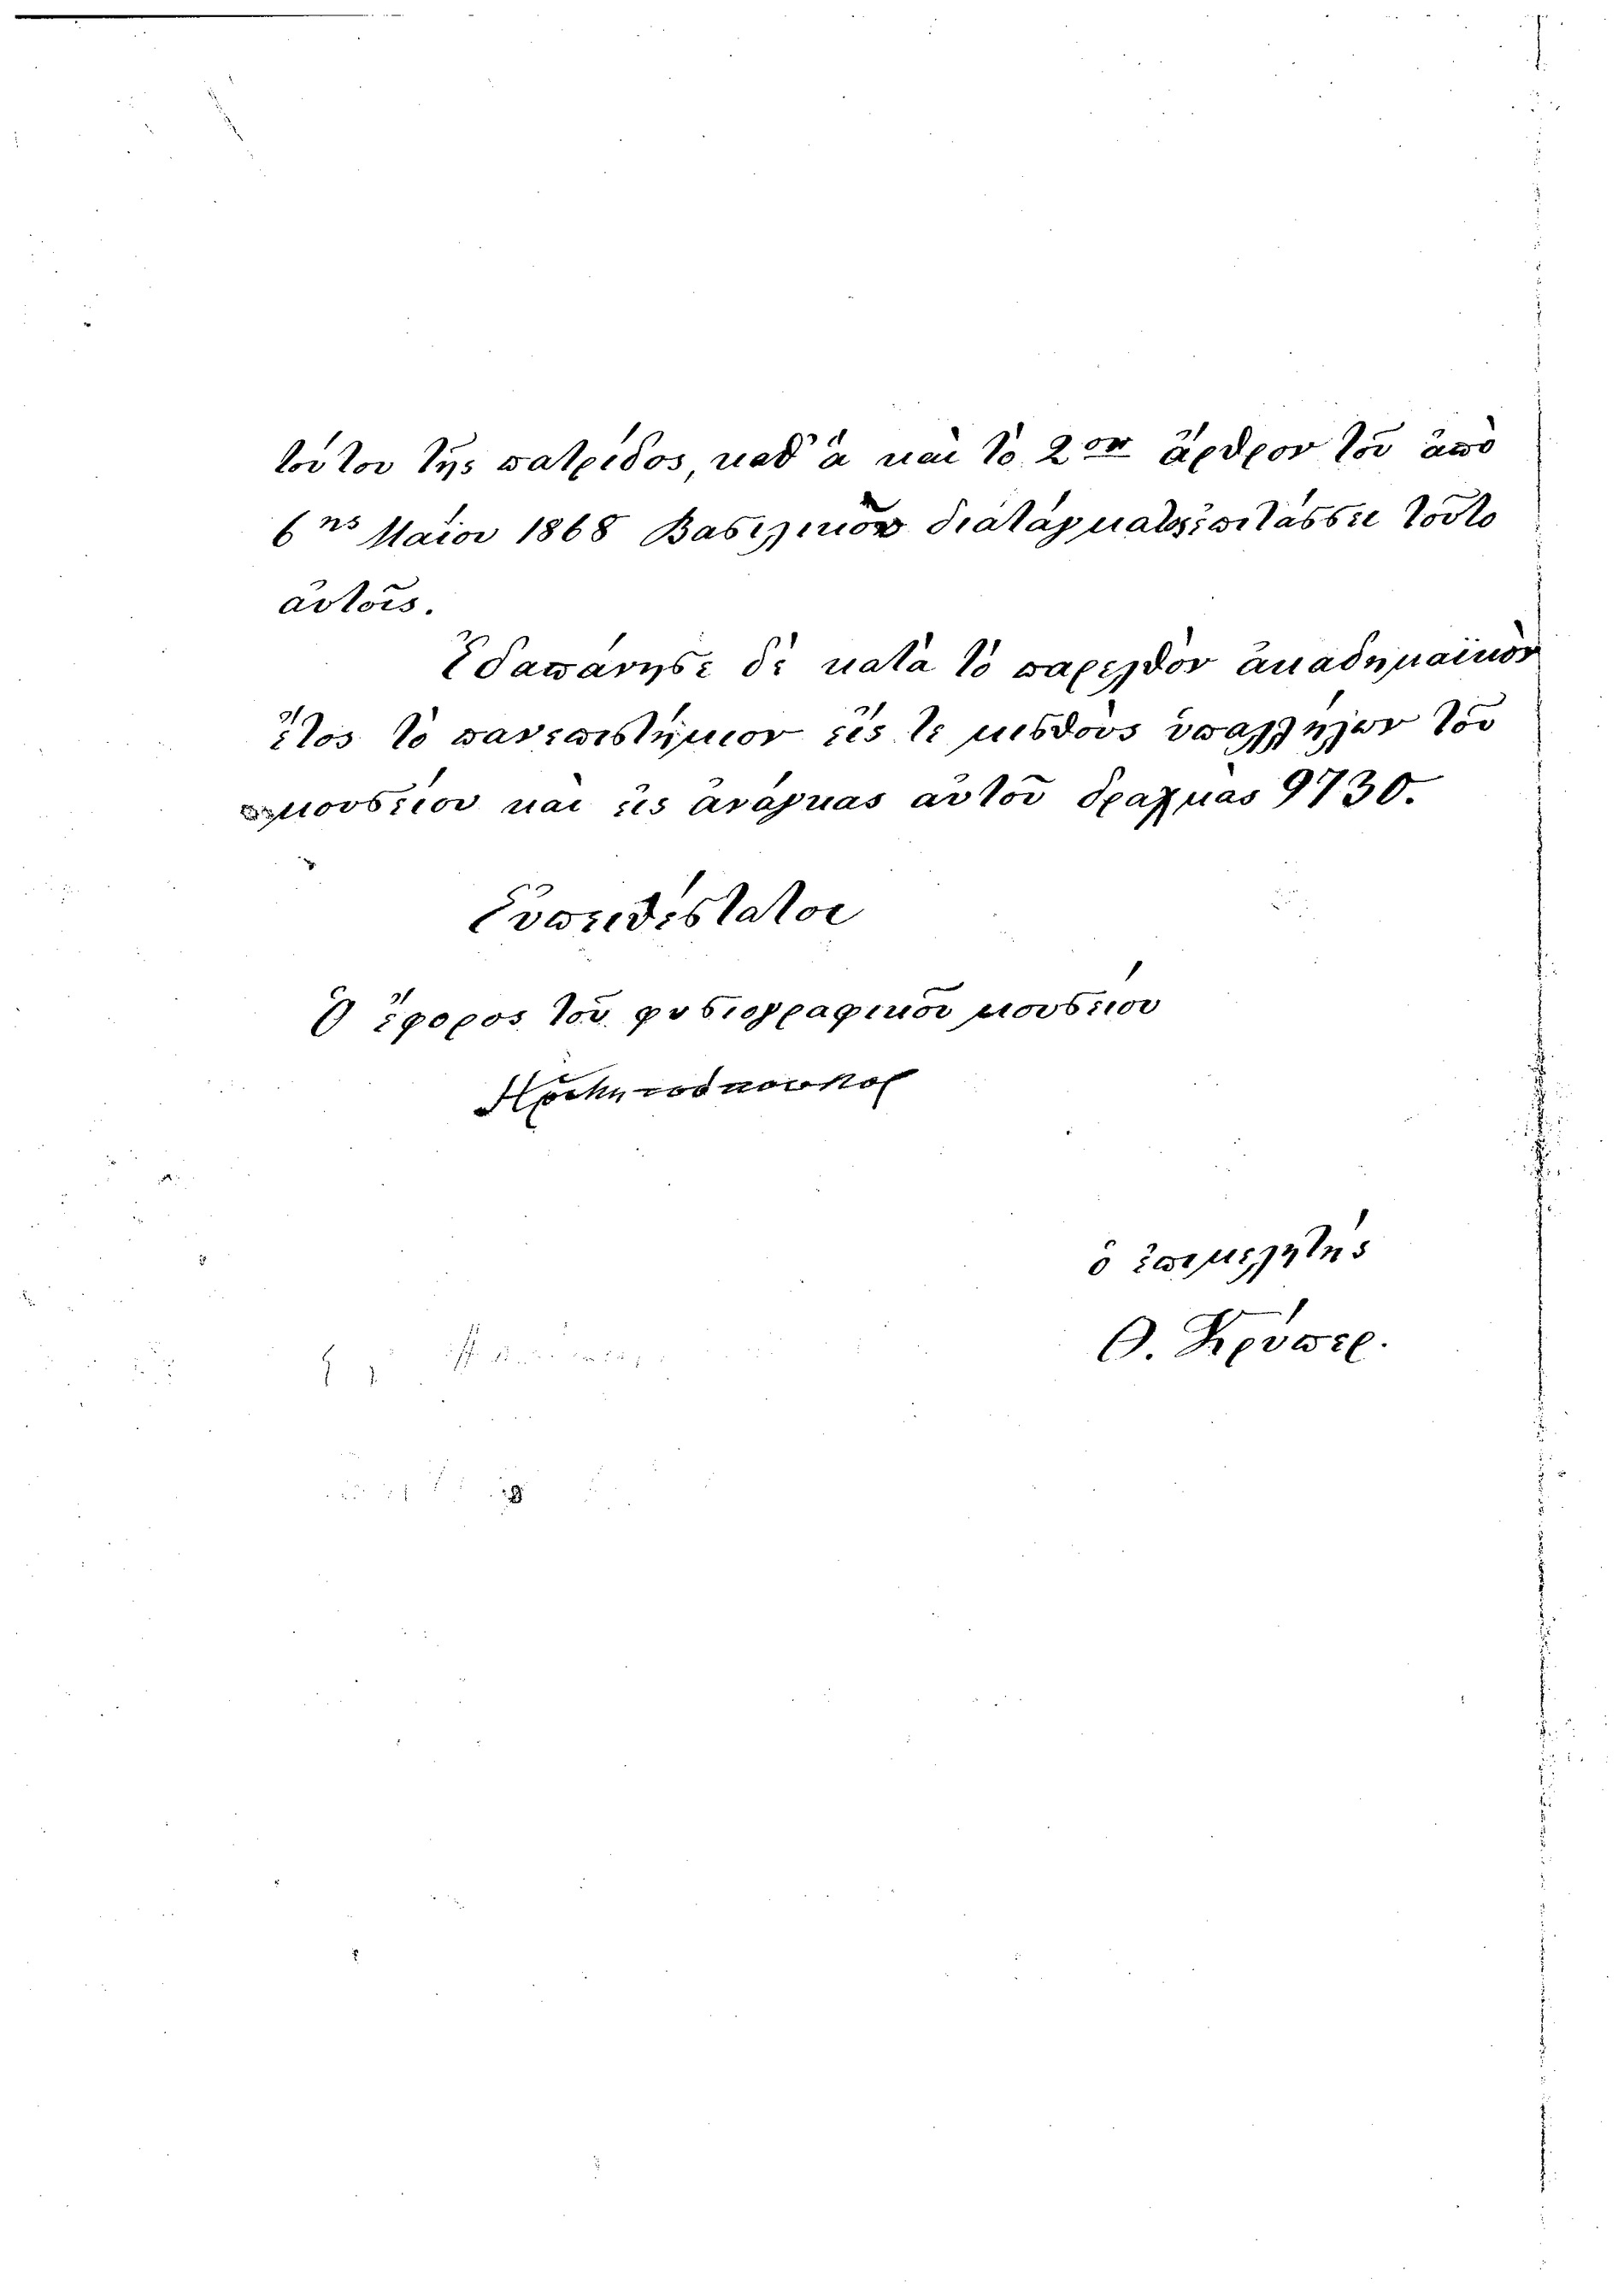 τούτου τῆς πατρίδος, καθ' ἃ καὶ τὸ 2ον ἄρθρον τοῦ ἀπὸ
6ης Μαΐου 1868 Βασιλικοῦ διατάγματος ἐπιτάσσει τοῦτο
αὐτοῖς.
Ἐδαπάνησε δὲ κατὰ τὸ παρελθὸν ἀκαδημαϊκὸν
ἔτος τὸ πανεπιστήμιον εἴς τε μισθοὺς ὑπαλλήλων τοῦ
μουσείου καὶ εἰς ἀνάγκας αὐτοῦ δραχμὰς 9730.
Εὐπειθέστατοι
Ὁ ἔφορος τοῦ φυσιογραφικοῦ μουσείου
ὁ ἐπιμελητής
Θ. Κρύπερ.